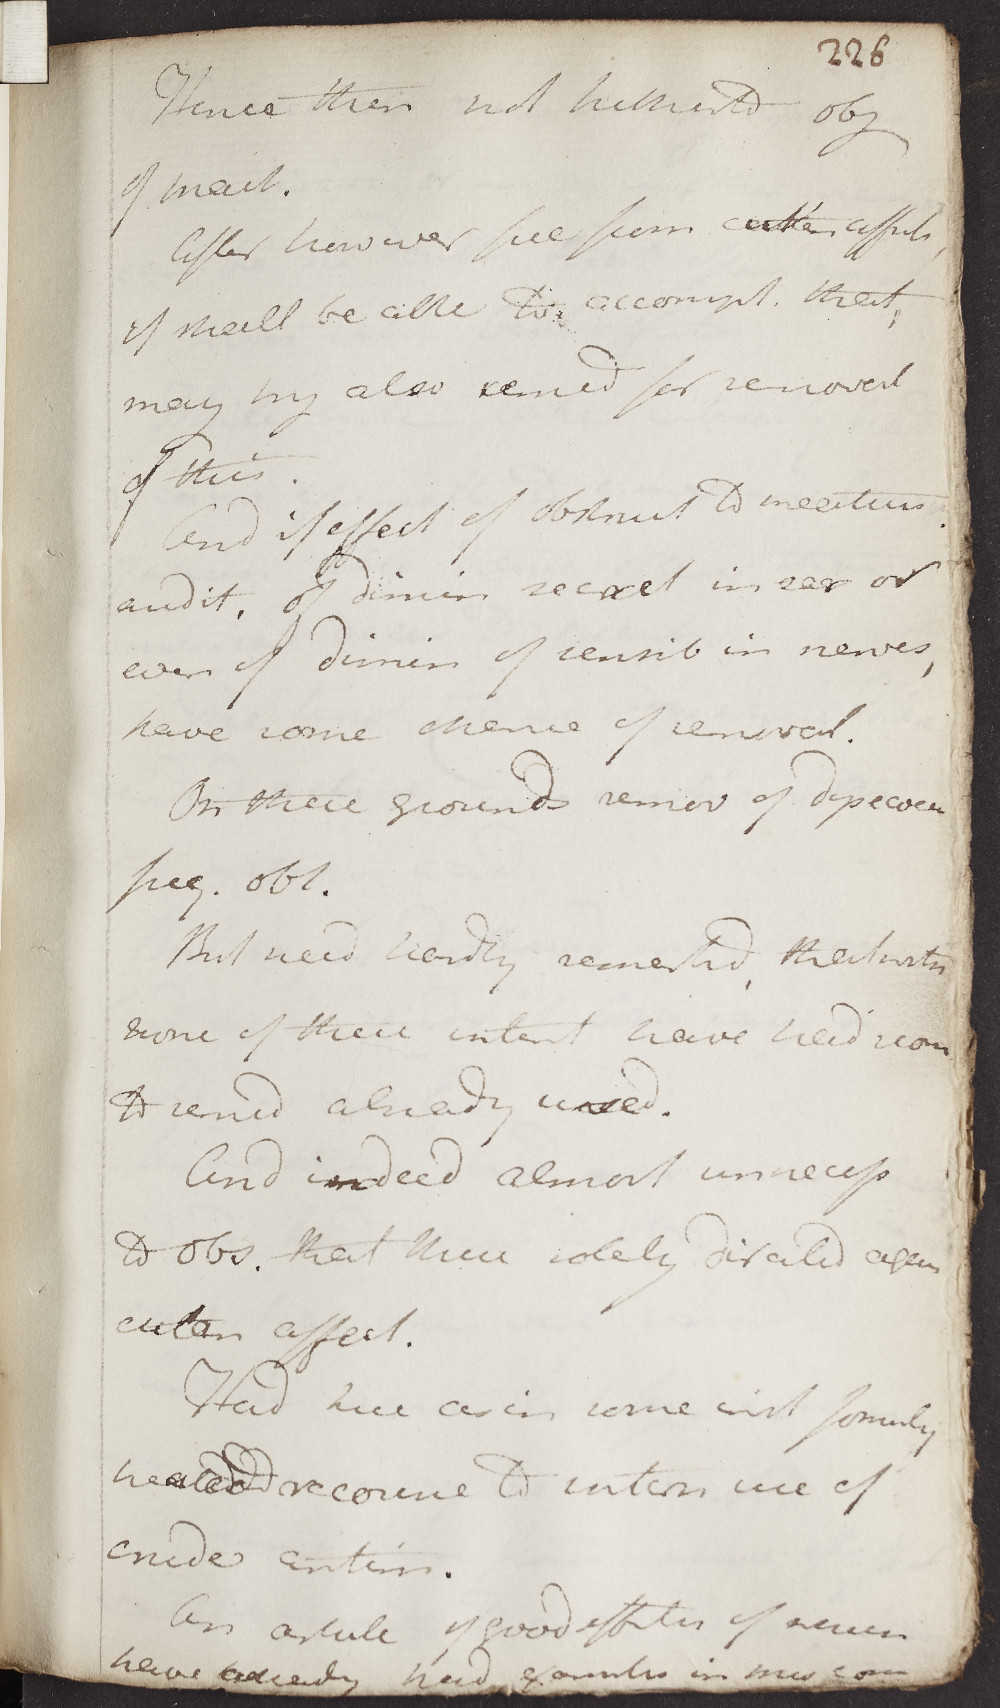 226
Hence then not hitherto obj
of pract.
After however free from cutan affect,
if shall be able to accompl. that,
may try also remed for removal
of this.
And if effect of obstruct to meatus
audit. of dimin secret in ear or
even of dimin of sensib in nerves,
have some chance of removal.
On these grounds remov of dysecoea
freq. obs.
But need hardly remarkd, that with
none of these intent have had recou
to remed already used.
And indeed almost unnecess
to obs. that these solely directed again
cutan affect.
Had here as in some inst formerly
treated recourse to intern use of
crude antim.
An article of good effects of
have already had examples in this cour